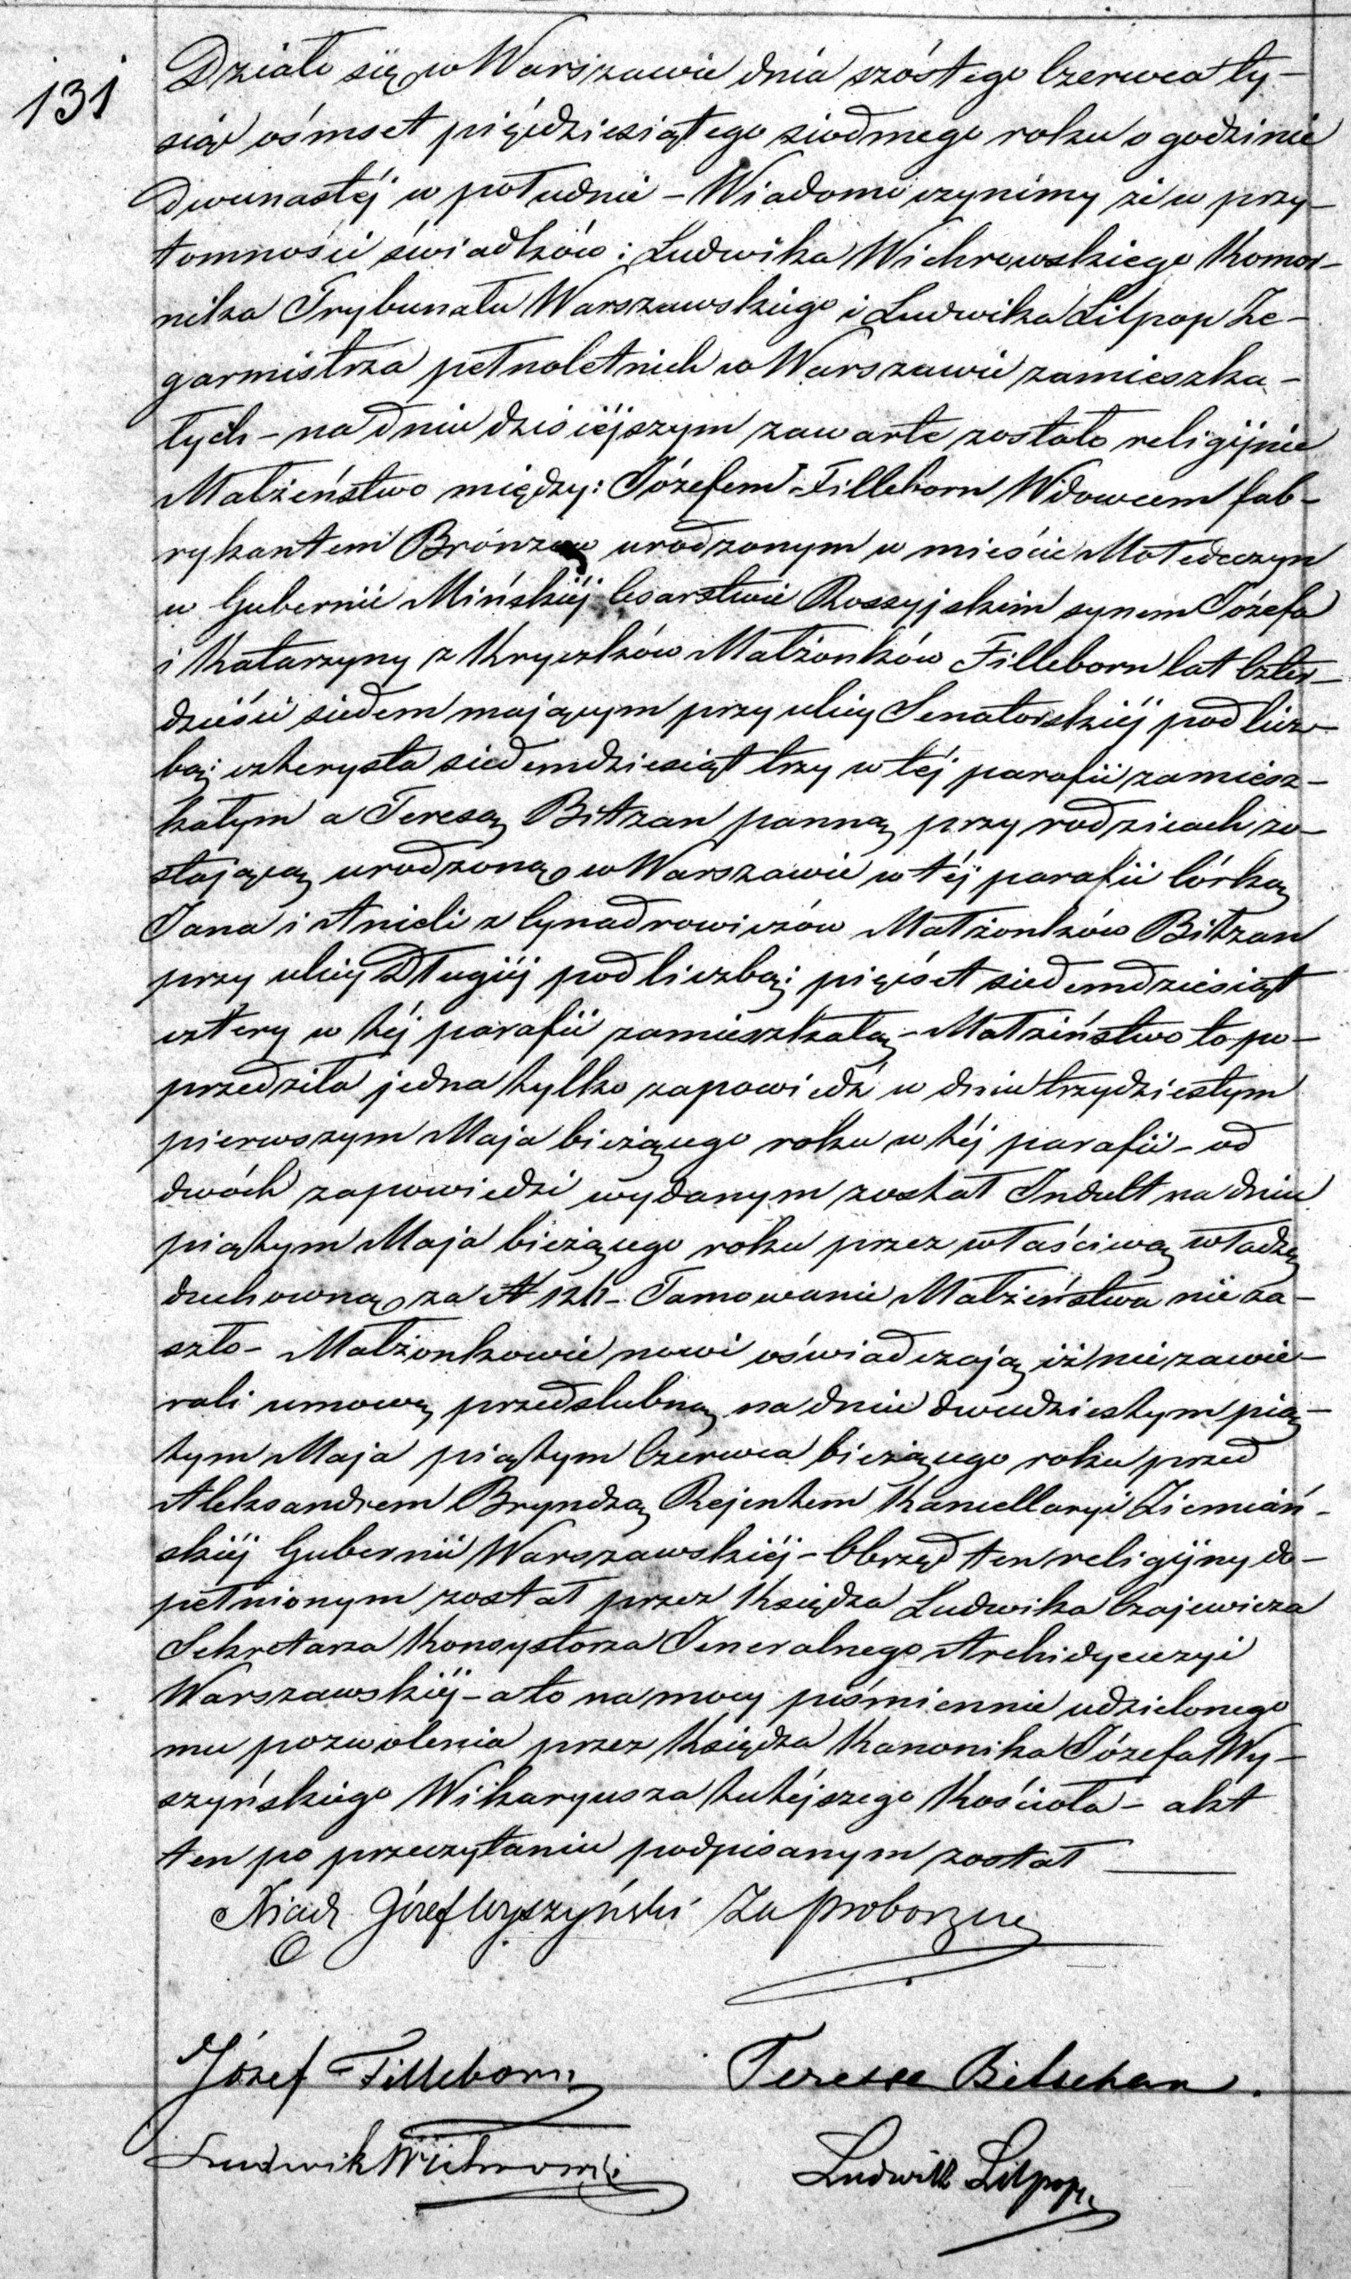 131
Działo się w Warszawie dnia szóstego Czerwca ty-
siąc ośmset pięćdziesiątego siódmego roku o godzinie
dwunastéj w południe – Wiadomo czynimy że w przy-
tomności świadków: Ludwika Wichrowskiego Komor-
nika Trybunału Warszawskiego i Ludwika Lilpop Ze-
garmistrza pełnoletnich w Warszawie zamieszka-
łych – na dniu dzisiéjszym zawarte zostało religijnie
Małżeństwo między: Józefem Filleborn Wdowcem fab-
rykantem Bronzów urodzonym w mieście Mołodeczyn
w Gubernii Mińskiéj Cesarstwie Rossyjskim synem Józefa
i Katarzyny z Kryczków Małżonków Filleborn lat Czter-
dzieści siedem mającym przy ulicy Senatorskiéj pod licz-
bą czterysta siedemdziesiąt trzy w téj parafii zamiesz-
kałym a Teresą Bitzan panną przy rodzicach zo-
stającą urodzoną w Warszawie w téj parafii Córką
Jana i Anieli z Cynadrowiczów Małżonków Bitzan
przy ulicy Długiéj pod liczbą pięćset siedemdziesiąt
cztery w téj parafii zamieszkałą – Małżeństwo to po-
przedziła jedna tylko zapowiedź w dniu trzydziestym
pierwszym Maja bieżącego roku w téj parafii – od
dwóch zapowiedzi wydanym został Indult na dniu
piątym Maja bieżącego roku przez właściwą władzę
duchowną za N
Tamowanie Małżeństwa nie za-
szło – Małżonkowie nowi oświadczają iż nie zawie-
rali umowę przedślubną na dniu dwudziestym pią-
tym Maja piątym Czerwca bieżącego roku przed
Aleksandrem Bryndzą Rejentem Kancellaryi Ziemiań-
skiéj Gubernii Warszawskiéj – Obrzęd ten religijny do-
pełnionym został przez Księdza Ludwika Czajewicza
Sekretarza Konsystorza Jeneralnego Archidyecezyi
Warszawskiéj – a to na mocy piśmiennie udzielonego
mu pozwolenia przez Księdza Kanonika Józefa Wy-
szyńskiego Wikaryusza tutéjszego Kościoła – akt
ten po przeczytaniu podpisanym został
Józef Wyszyński Za Proboszcza
Józef Filleborn Teressa Bitschan.
Ludwik Wichrowski Ludwik Lilpop